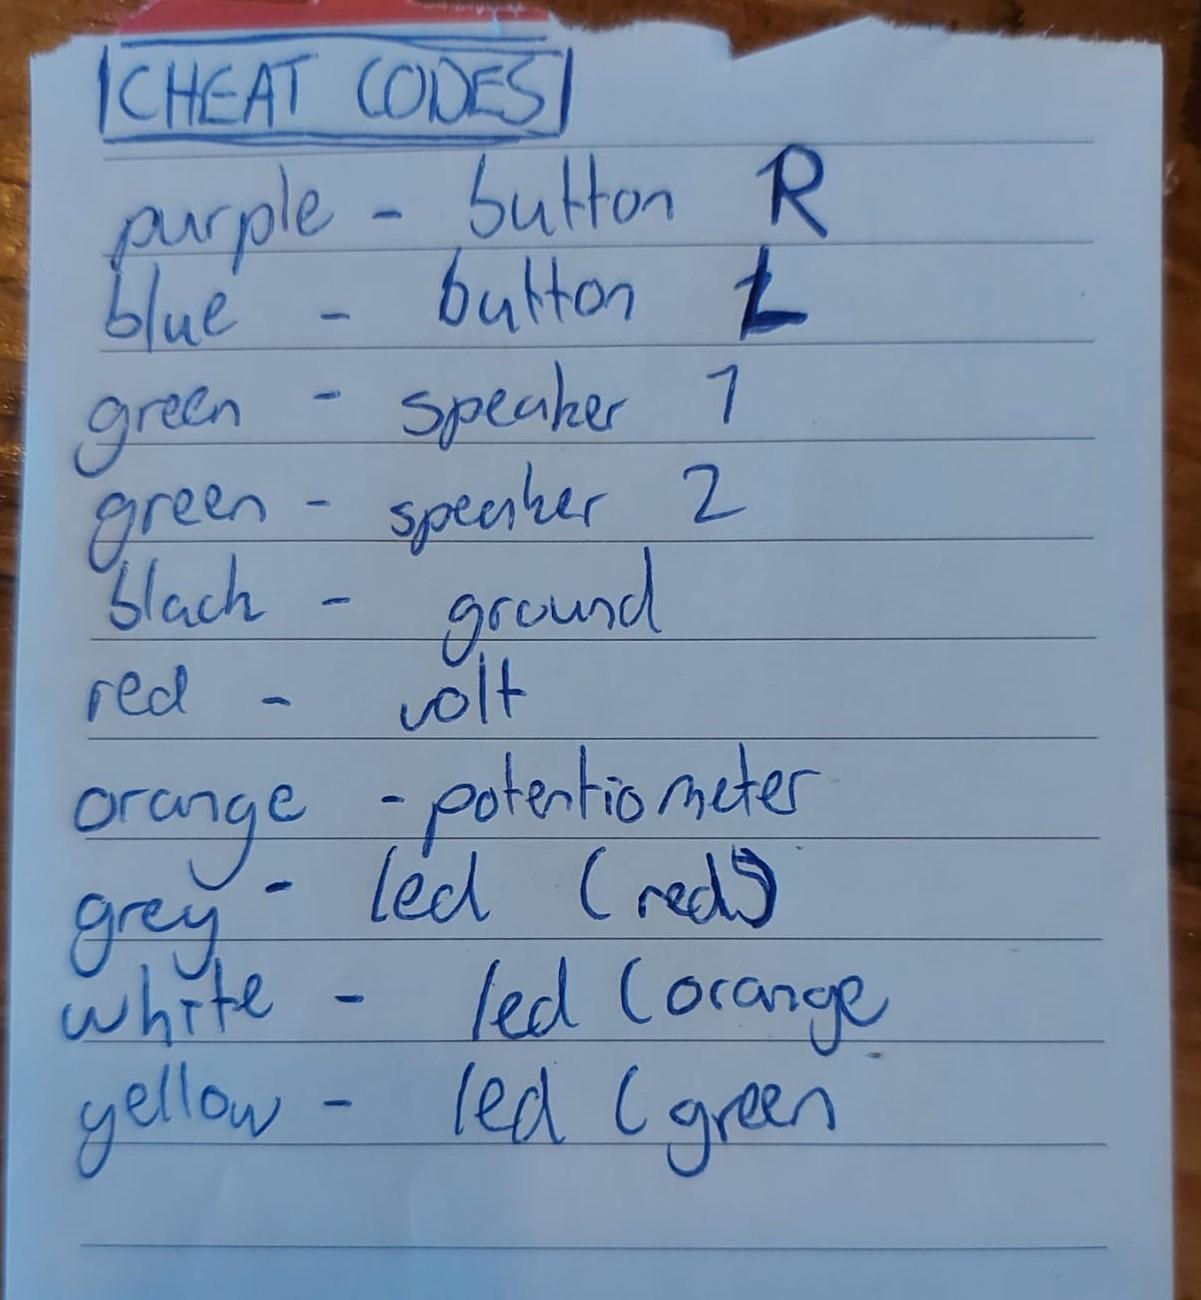 CHEAT CODES
purple - button R
blue - button L
green - speaker 1
green - speaker 2
black - ground
red - volt
orange - potentiometer
grey - led (red)
white - led (orange
yellow - led (green